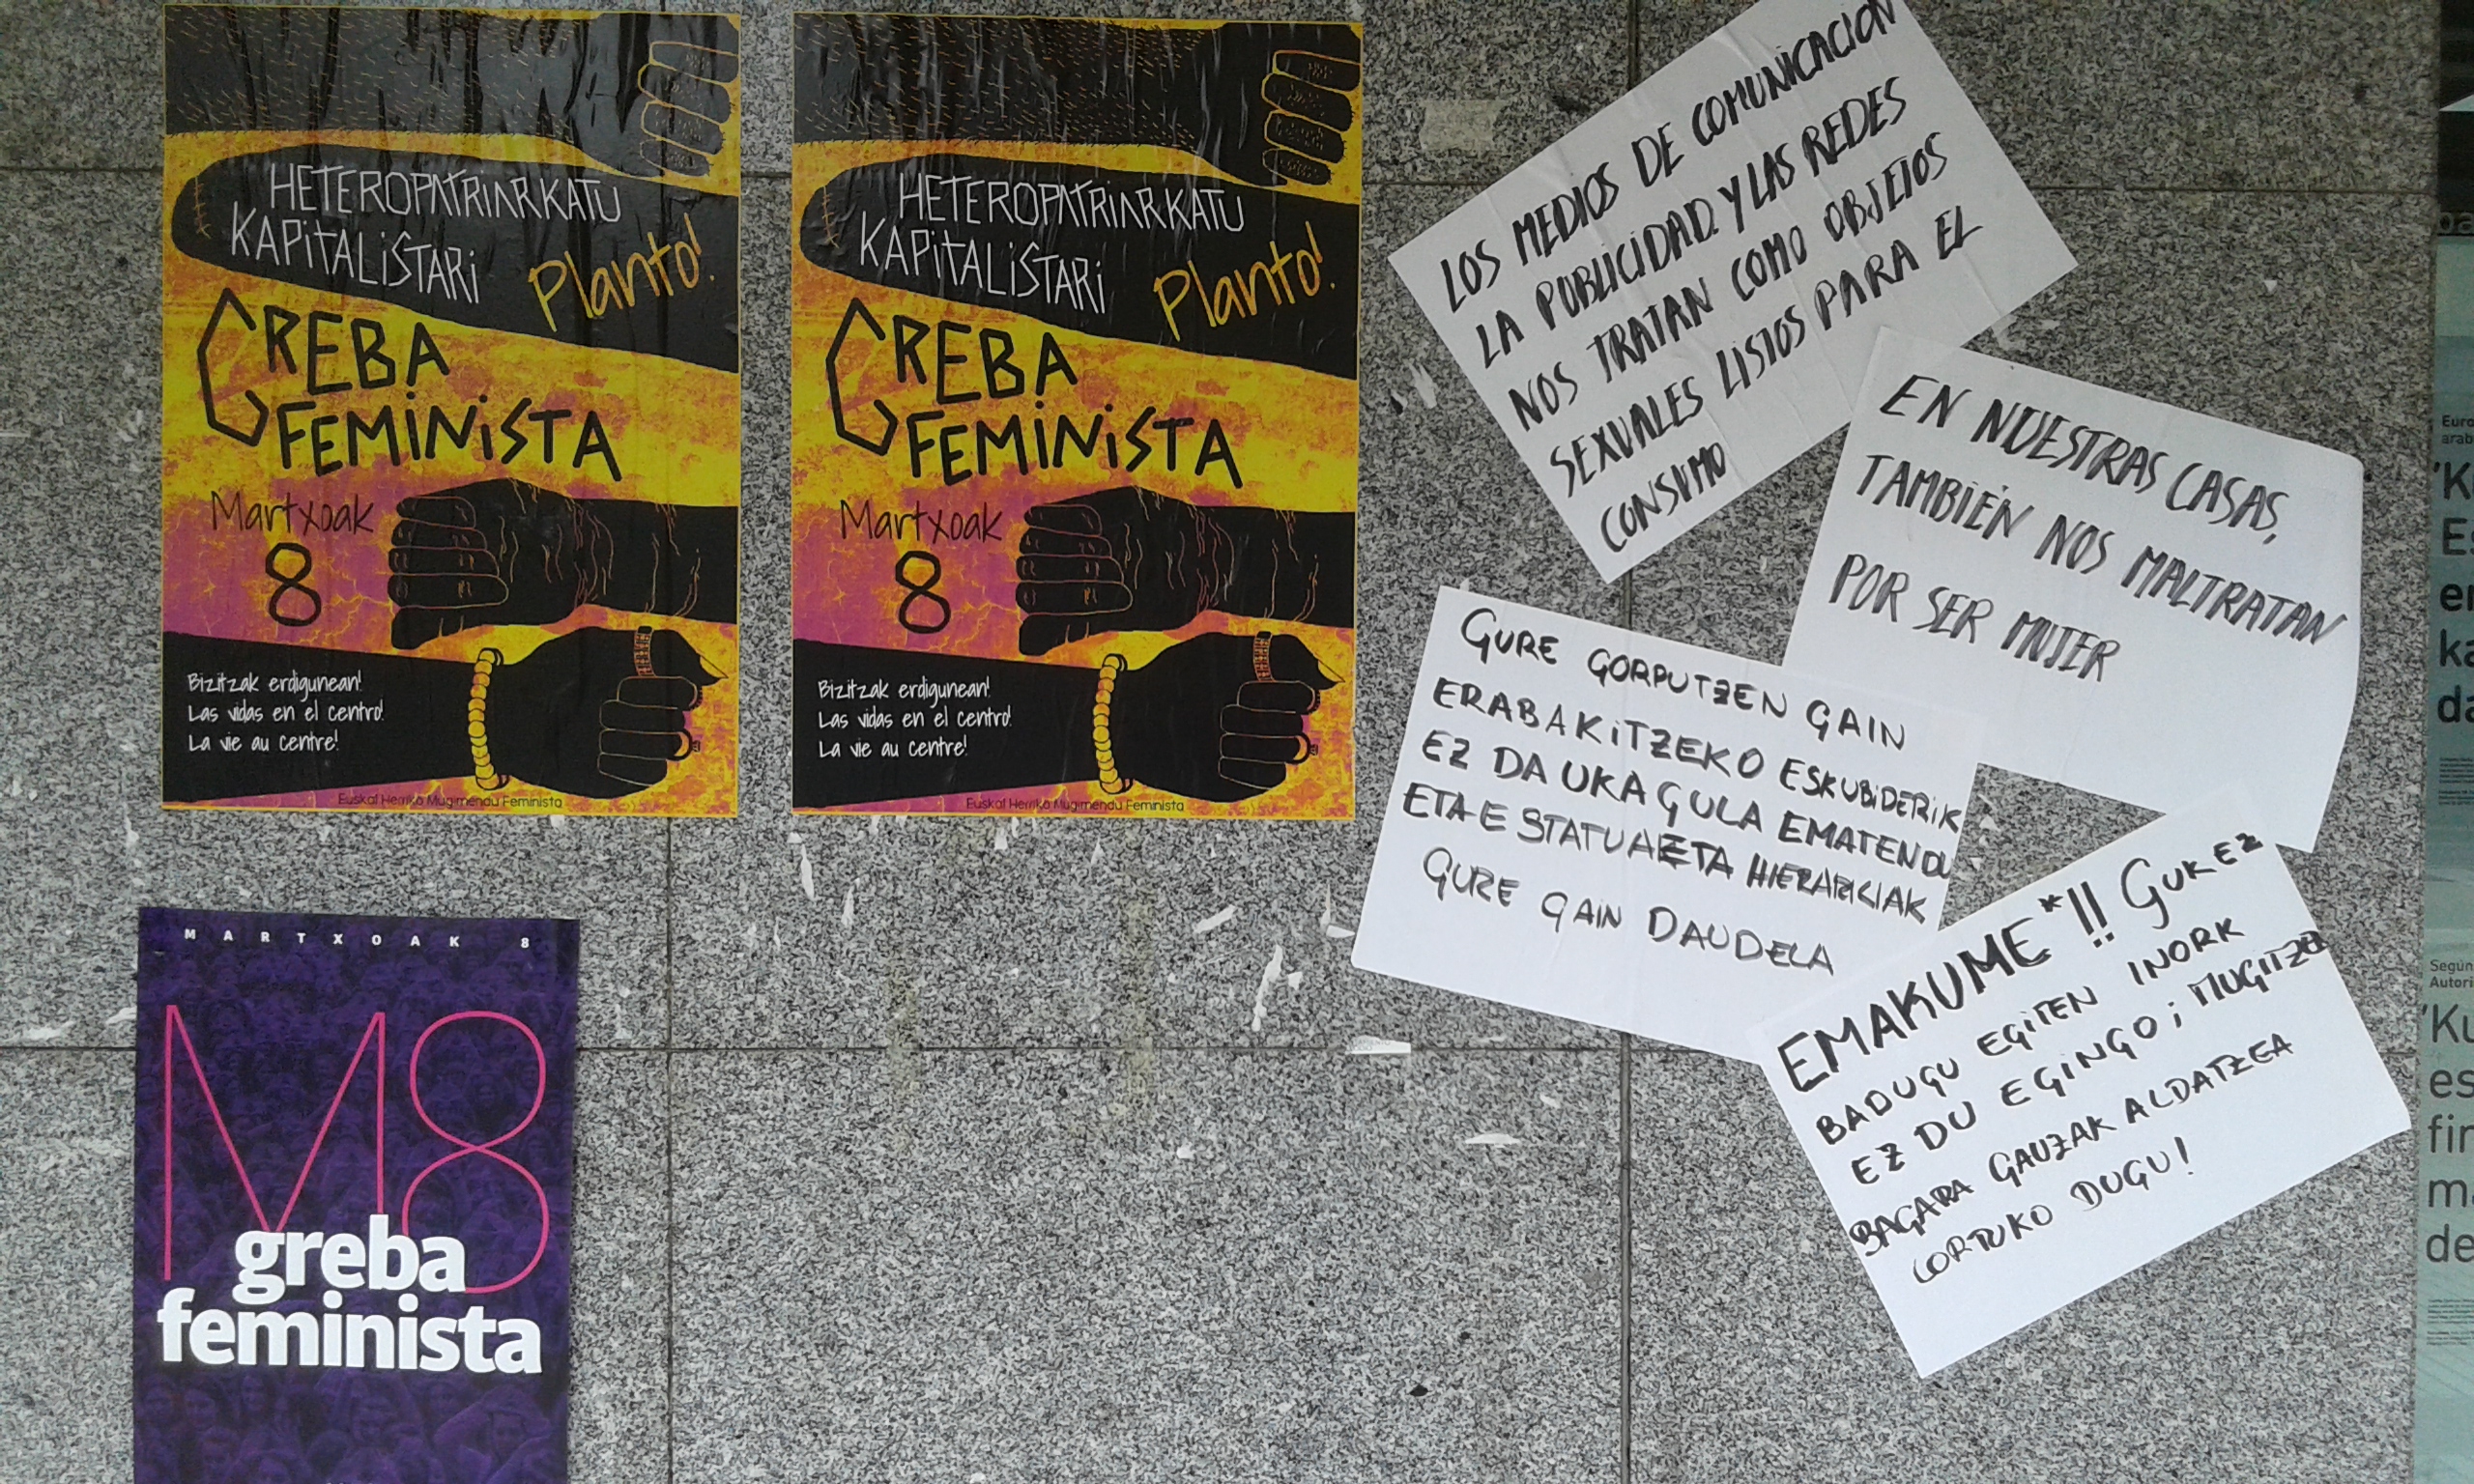 HETEROPATRIARKATU
KAPiTALiSTARi
Planto!
GREBA
FEMINiSTA
Martxoak
8
Bizitzak erdigunean!
Las vidas en el centro!
La vie au centre!
Euskal Herriko Mugimendu Feminista
HETEROPATRIARKATU
KAPiTALiSTARi
Planto!
GREBA
FEMINiSTA
Martxoak
8
Bizitzak erdigunean!
Las vidas en el centro!
La vie au centre!
Euskal Herriko Mugimendu Feminista
MARTXOAK 8
M8
greba
feminista
LOS MEDIOS DE COMUNICACIÓN
LA PUBLICIDAD. Y LAS REDES
NOS TRATAN COMO OBJETOS
SEXUALES LISTOS PARA EL
CONSUMO
EN NUESTRAS CASAS,
TAMBIÉN NOS MALTRATAN
POR SER MUJER
GURE GORPUTZEN GAIN
ERABAKiTZEKO ESKUBiDERiK
EZ DAUKAGULA EMATEN DU
ETA ESTATUA ETA HIERARKIAK
GURE GAiN DAUDELA
EMAKUME*!! GUK EZ
BADUGU EGiTEN INORK
EZ DU EGiNGO; MUGITZEN
BAGARA GAUZAK ALDATZEA
LORTUKO DUGU!
Euro
arab
'K
Es
er
ka
da
Según
Autori
'Ku
es
fin
ma
de